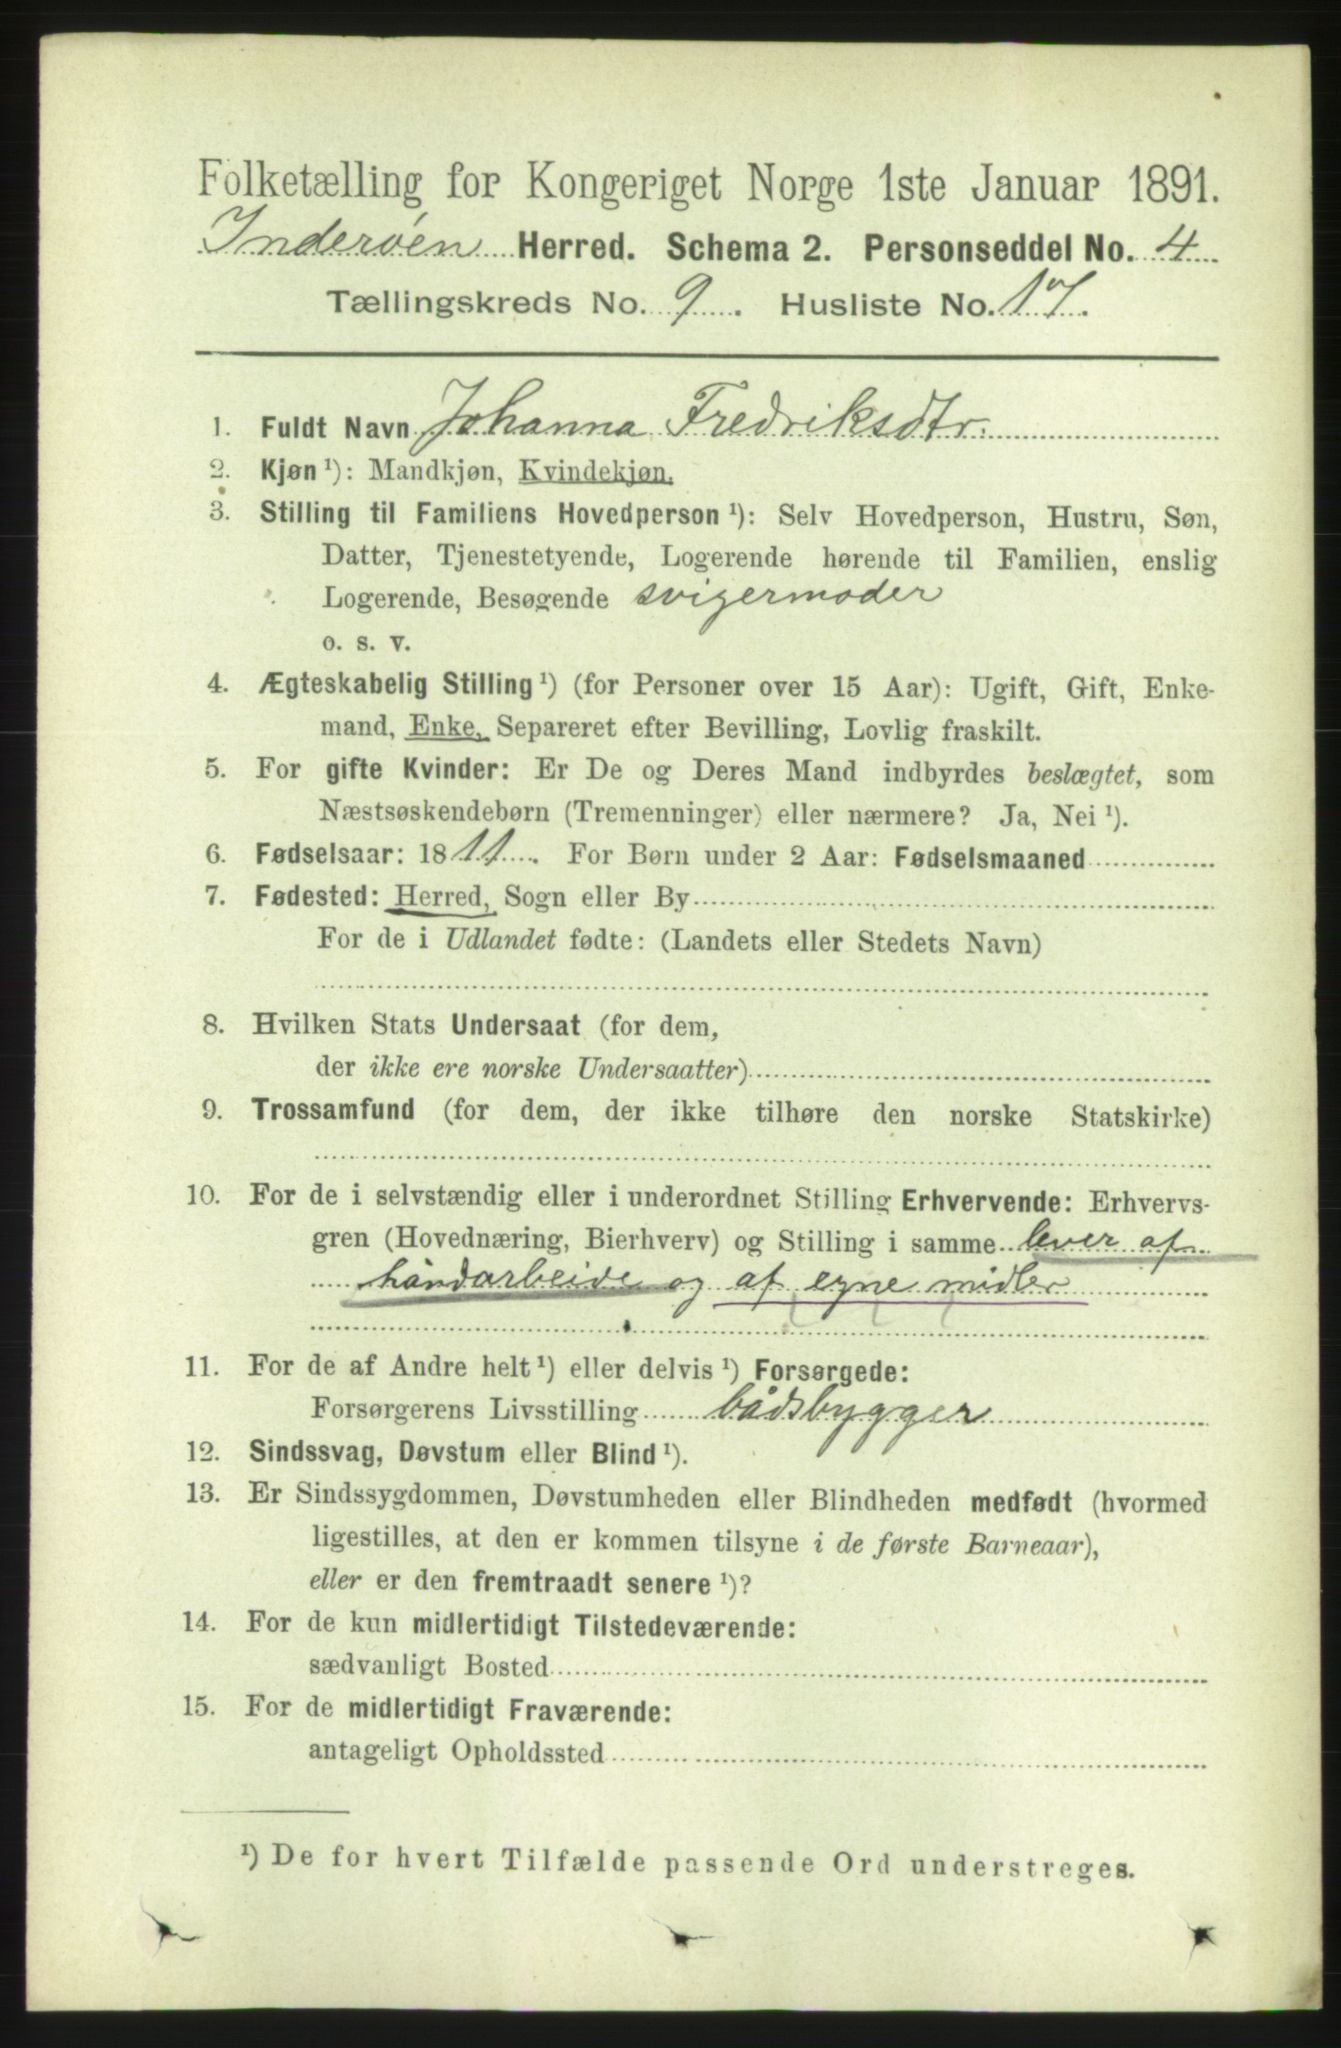 Folketælling for Kongeriget Norge 1ste Januar 1891.
Inderøen Herred. Schema 2. Personseddel No. 4
Tællingskreds No. 9. Husliste No. 17.
1. Fuldt Navn Johanna Fredriksdtr.
2. Kjøn ¹): Mandkjøn, Kvindekjøn.
3. Stilling til Familiens Hovedperson ¹): Selv Hovedperson, Hustru, Søn,
Datter, Tjenestetyende, Logerende hørende til Familien, enslig
Logerende, Besøgende svigermoder
o. s. v.
4. Ægteskabelig Stilling ¹) (for Personer over 15 Aar): Ugift, Gift, Enke-
mand, Enke, Separeret efter Bevilling, Lovlig fraskilt.
5. For gifte Kvinder: Er De og Deres Mand indbyrdes beslægtet, som
Næstsøskendebørn (Tremenninger) eller nærmere? Ja, Nei ¹).
6. Fødselsaar: 1811. For Børn under 2 Aar: Fødselsmaaned
7. Fødested: Herred, Sogn eller By
For de i Udlandet fødte: (Landets eller Stedets Navn)
8. Hvilken Stats Undersaat (for dem,
der ikke ere norske Undersaatter)
9. Trossamfund (for dem, der ikke tilhøre den norske Statskirke)
10. For de i selvstændig eller i underordnet Stilling Erhvervende: Erhvervs-
gren (Hovednæring, Bierhverv) og Stilling i samme lever af
håndarbeide og af egne midler
11. For de af Andre helt ¹) eller delvis ¹) Forsørgede:
Forsørgerens Livsstilling bådsbygger
12. Sindssvag, Døvstum eller Blind ¹).
13. Er Sindssygdommen, Døvstumheden eller Blindheden medfødt (hvormed
ligestilles, at den er kommen tilsyne i de første Barneaar),
eller er den fremtraadt senere ¹)?
14. For de kun midlertidigt Tilstedeværende:
sædvanligt Bosted
15. For de midlertidigt Fraværende:
antageligt Opholdssted
¹) De for hvert Tilfælde passende Ord understreges.